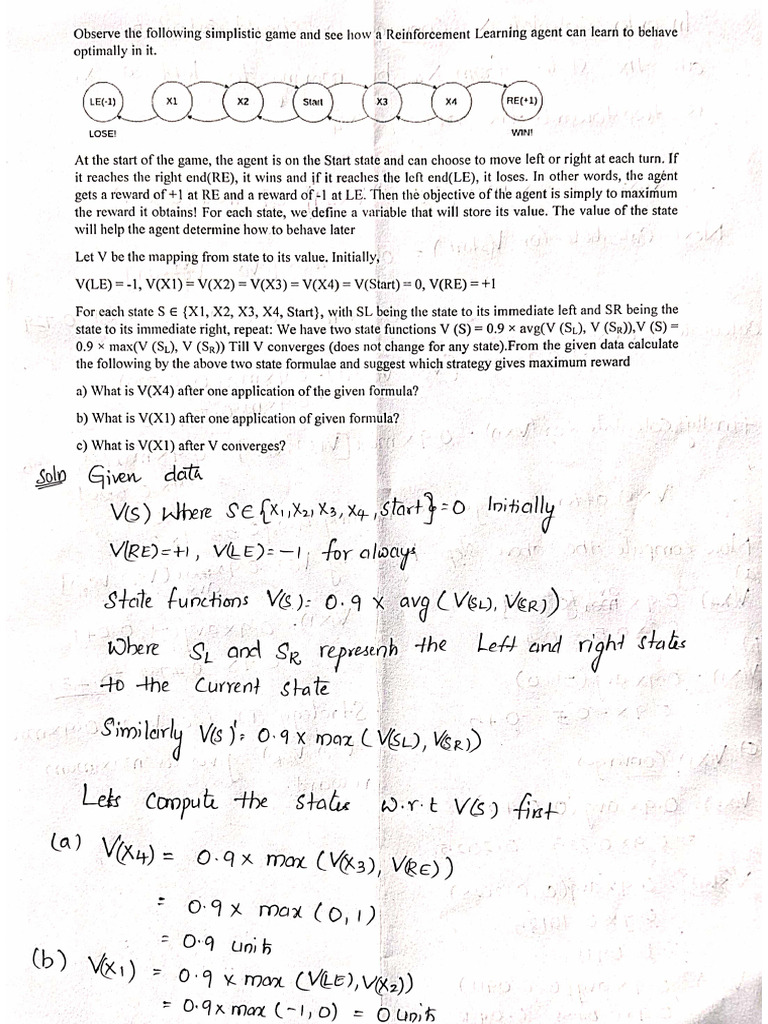 Observe the following simplistic game and see how a Reinforcement Learning agent can learn to behave
optimally in it.
LE(-1) X1 X2 Start X3 X4 RE(+1)
LOSE! WIN!
At the start of the game, the agent is on the Start state and can choose to move left or right at each turn. If
it reaches the right end(RE), it wins and if it reaches the left end(LE), it loses. In other words, the agent
gets a reward of +1 at RE and a reward of -1 at LE. Then the objective of the agent is simply to maximum
the reward it obtains! For each state, we define a variable that will store its value. The value of the state
will help the agent determine how to behave later
Let V be the mapping from state to its value. Initially,
V(LE) = -1, V(X1) = V(X2) = V(X3) = V(X4) = V(Start) = 0, V(RE) = +1
For each state S ∈ {X1, X2, X3, X4, Start}, with SL being the state to its immediate left and SR being the
state to its immediate right, repeat: We have two state functions V (S) = 0.9 × avg(V (SL), V (SR)),V (S) =
0.9 × max(V (SL), V (SR)) Till V converges (does not change for any state).From the given data calculate
the following by the above two state formulae and suggest which strategy gives maximum reward
a) What is V(X4) after one application of the given formula?
b) What is V(X1) after one application of given formula?
c) What is V(X1) after V converges?
Soln Given data
V(S) Where S∈{X1,X2,X3,X4,start}=0 Initially
V(RE)=+1, V(LE)=-1, for always
State functions V(S)= 0.9 x avg (V(SL), V(SR))
Where SL and SR represents the Left and right states
to the Current state
Similarly V(S)'= 0.9 x max (V(SL), V(SR))
Lets compute the states w.r.t V(S) first
(a) V(X4) = 0.9 x max (V(X3), V(RE))
= 0.9 x max (0,1)
= 0.9 units
(b) V(X1) = 0.9 x max (V(LE),V(X2))
= 0.9x max (-1,0) = 0 units